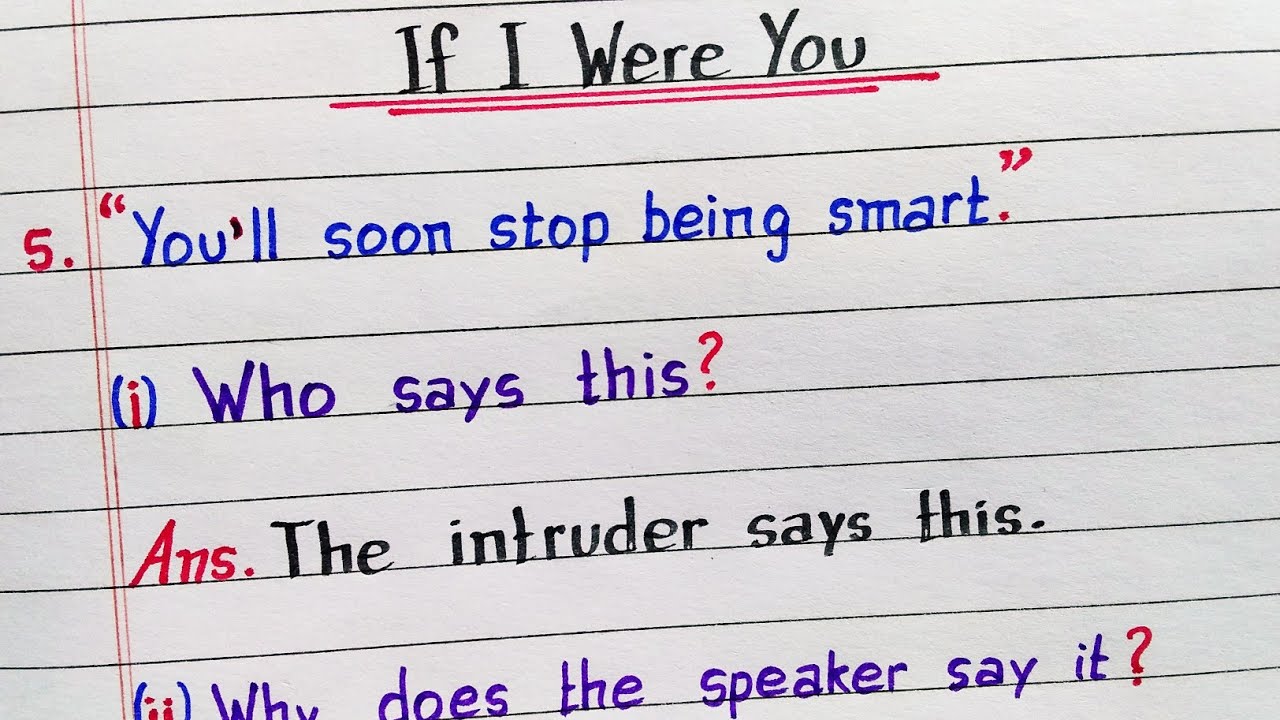 If I Were You
5. “You'll soon stop being smart.”
(i) Who says this?
Ans. The intruder says this.
(ii) Why does the speaker say it?